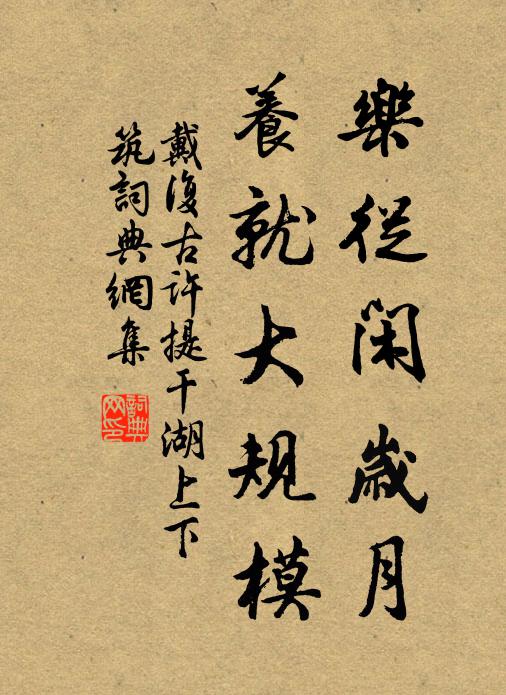 樂從閑歲月
養就大規模
戴復古許提干湖上下
筑詞典網集
詞典網印